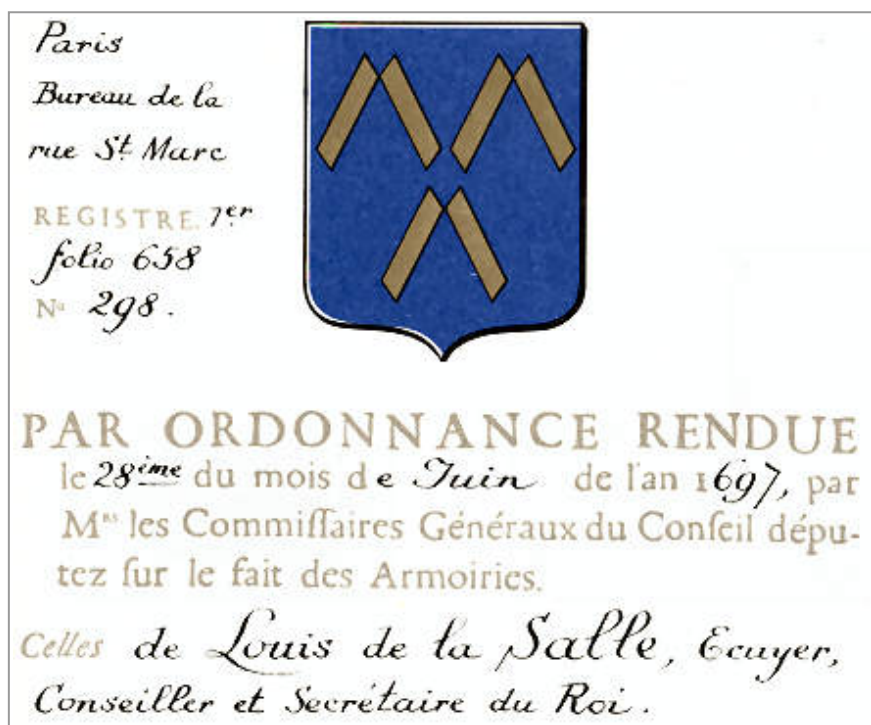 Paris
Bureau de la
rue St Marc
REGISTRE. 1er
folio 658
No 298.
PAR ORDONNANCE RENDUE
le 28ième du mois de Juin de l'an 1697, par
Mrs les Commiſſaires Généraux du Conſeil dépu-
tez ſur le fait des Armoiries.
Celles de Louis de la Salle, Ecuyer,
Conseiller et Secrétaire du Roi.